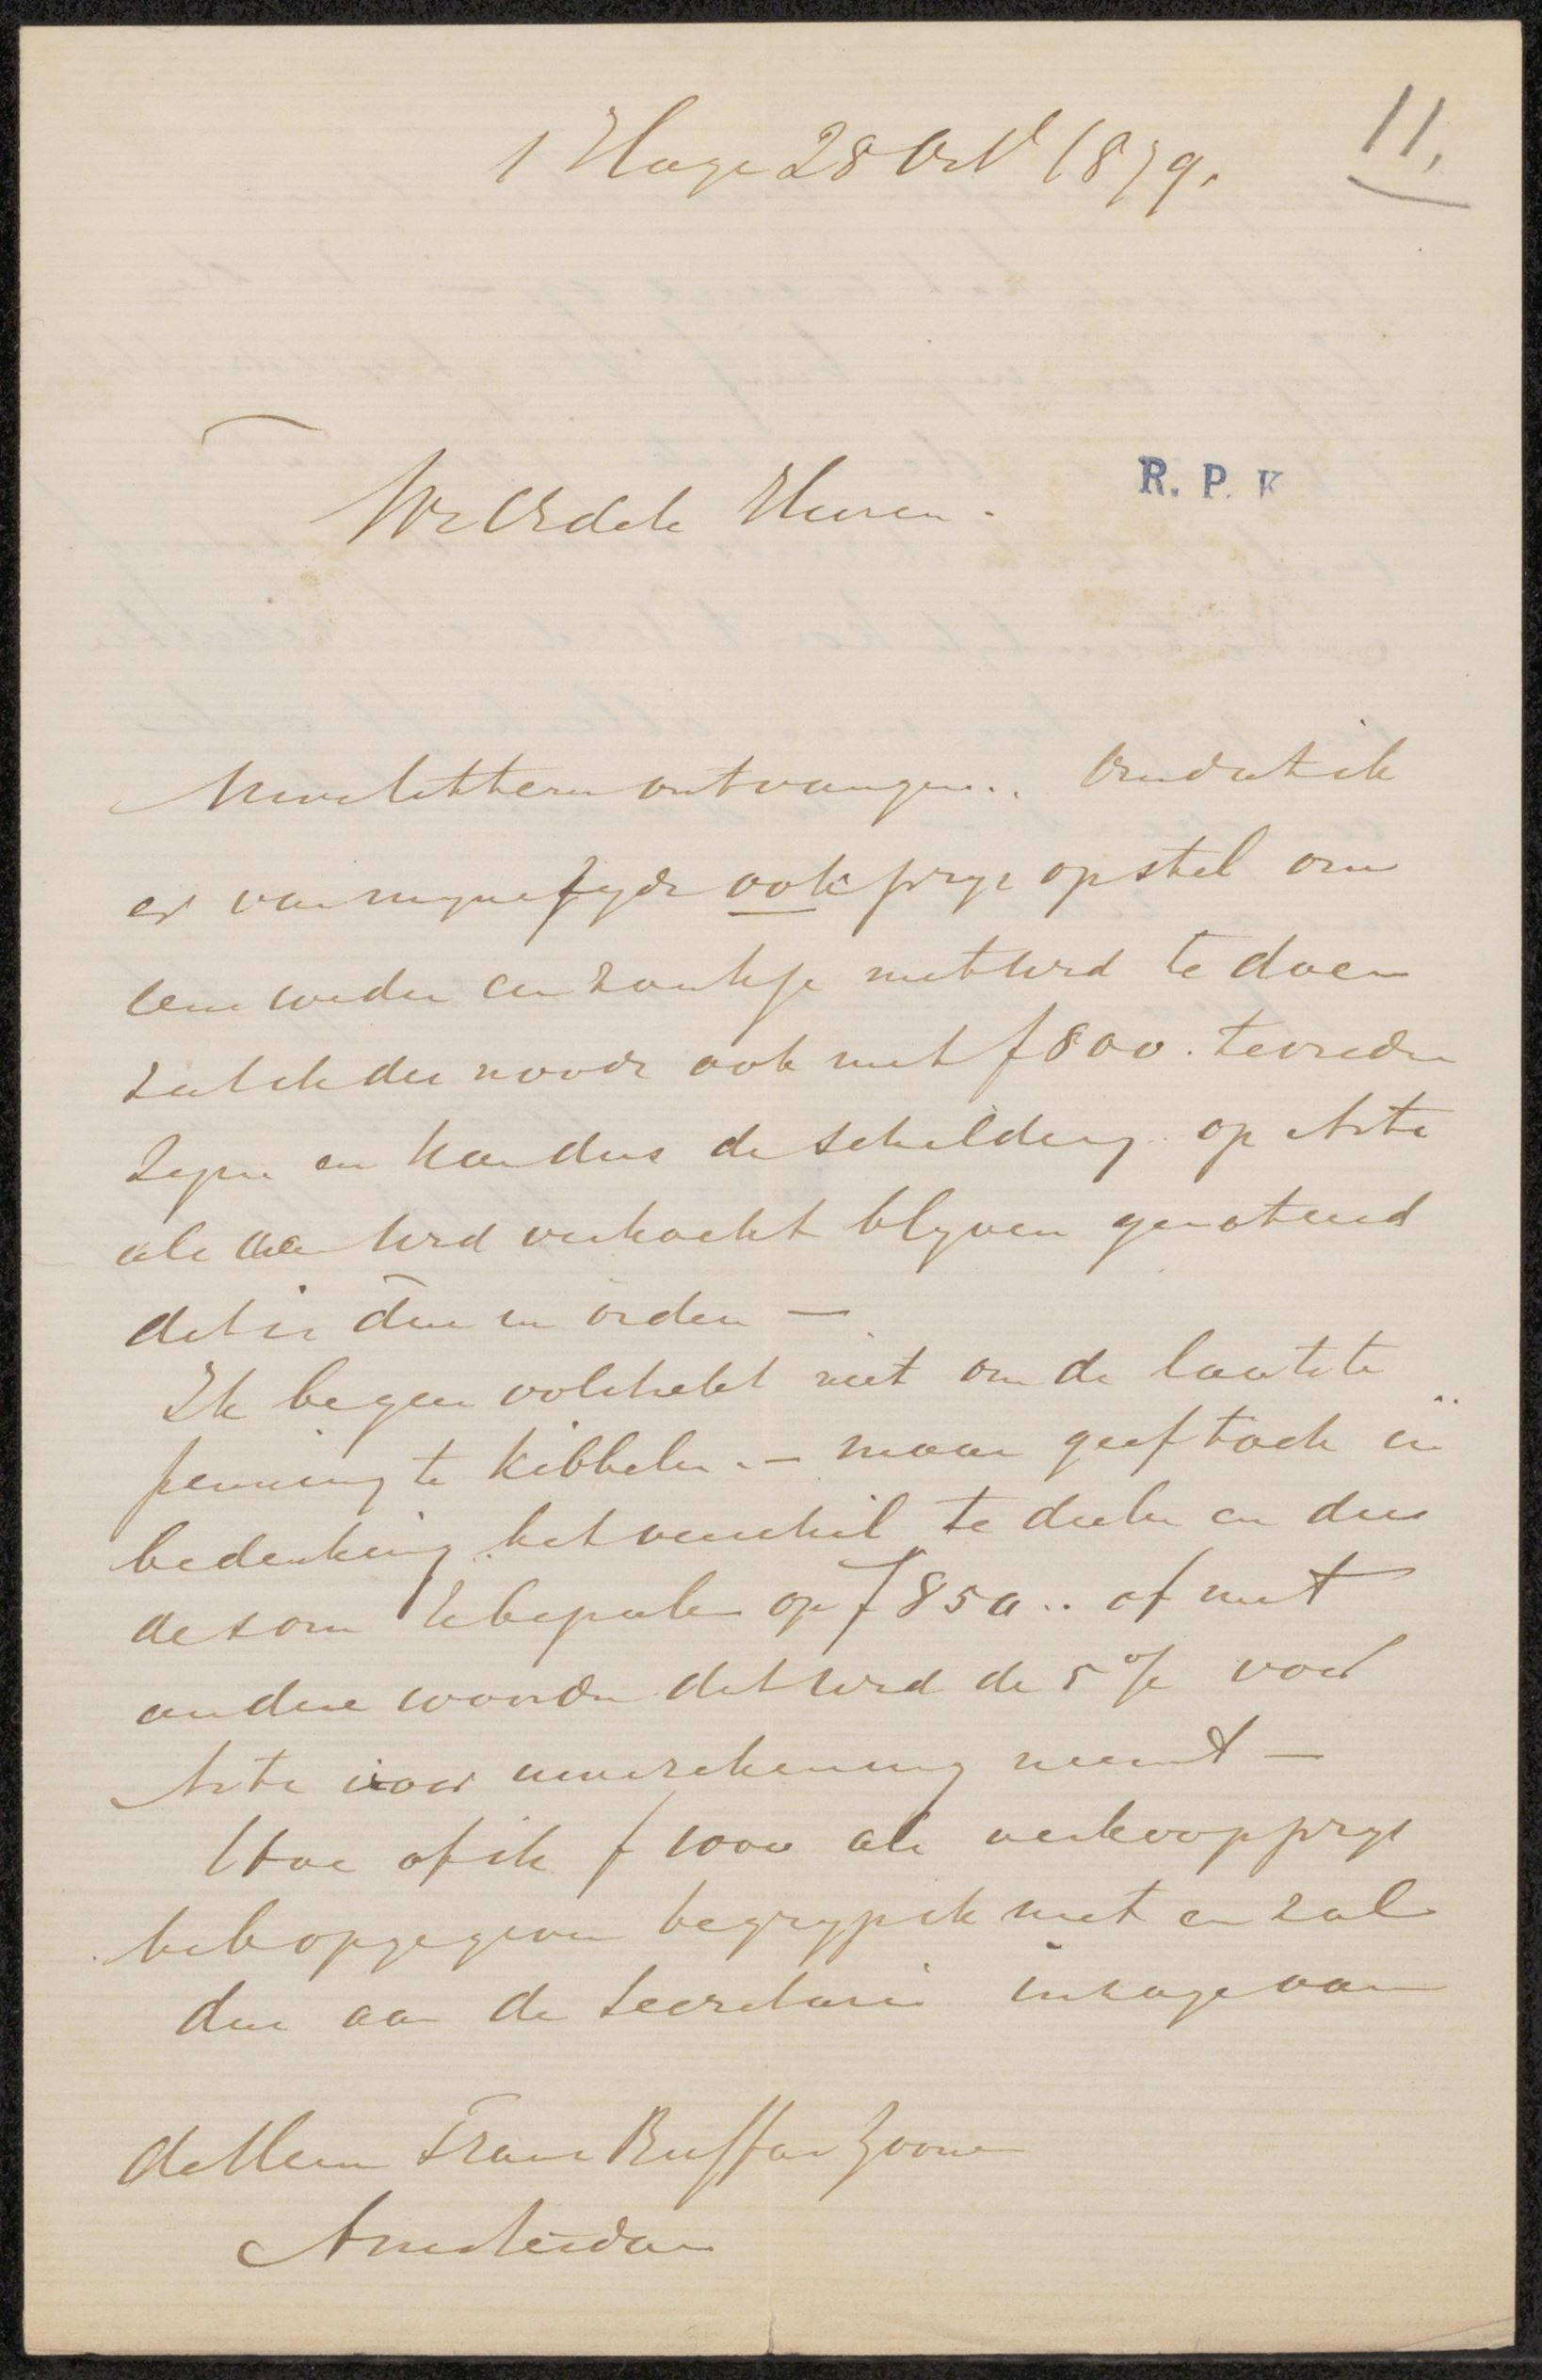 's Hage 28 Oct 1879.
11.
R. P. K
WelEdele Heeren.
Uwe letteren ontvangen.. Omdat ik
er van mijne zijde ook prijs op stel om
eens weder een zaakje met Ued te doen
zal ik des noods ook met f 800. tevreden
zijn en kan dus de schilderij op Arti
als aan Ued verkocht blijven genoteerd
dat is dus in orden —
Ik begeer volstrekt niet om de laatste
penning te kibbelen. — maar geef toch in
bedenking het verschil te deelen en dus
de som te bepalen op f 850.. of met
andere woorden dat Ued de 5 % voor
Arti voor uwe rekening neemt —
Hoe of ik f 1000 als verkoopprijs
heb opgegeven begrijp ik niet en zal
dus aan de Secretaris inzage van
de Heeren Frans Buffa en Zoonen
Amsterdam